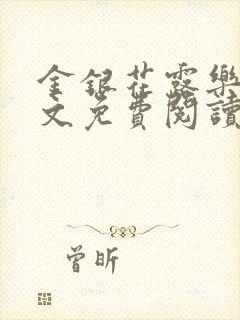 金銀花露樂
文免費閱讀
曾昕